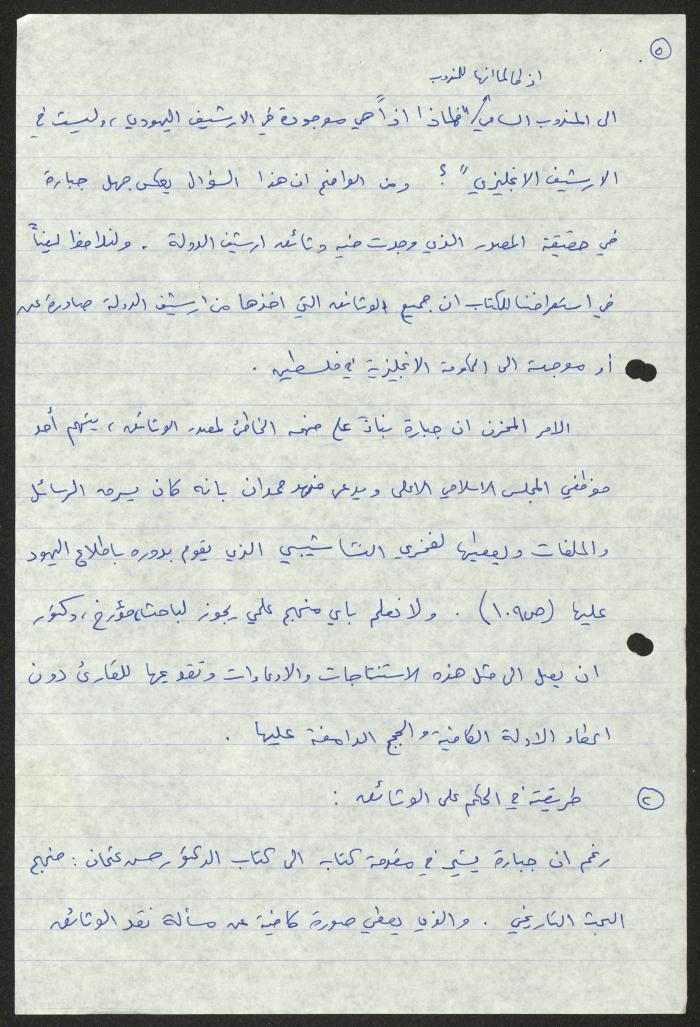 ٥
اذ طالما انها للمندوب
الى المندوب السامي/ "فلماذا اذاً هي موجودة في الارشيف اليهودي، وليست في
الارشيف الانجليزي" ؟ ومن الواضح ان هذا السؤال يعكس جهل جبارة
في حقيقة المصدر الذي وجدت فيه وثائق ارشيف الدولة . ولنلاحظ ايضاً
في استعراضنا للكتاب ان جميع الوثائق التي اخذها من ارشيف الدولة صادرة عن
أو موجهة الى الحكومة الانجليزية في فلسطين .
الامر المحزن ان جبارة بناءً على فهمه الخاطئ لمصدر الوثائق ، يتهم أحد
موظفي المجلس الاسلامي الاعلى ويدعى حمدان بانه كان يسرق الرسائل
والملفات ويعطيها لفخري النشاشيبي الذي يقوم بدوره باطلاع اليهود
عليها (ص١٠٩) . ولا نعلم باي منهج علمي يجوز لباحث، مؤرخ ، دكتور
ان يصل الى مثل هذه الاستنتاجات والادعاءات وتقديمها للقارئ دون
اعطاء الادلة الكافية والحجج الدامغة عليها .
٢ طريقته في الحكم على الوثائق :
رغم ان جبارة يشير في مقدمة كتابه الى كتاب الدكتور حسن عثمان : منهج
البحث التاريخي . والذي يعطي صورة كافية عن مسألة نقد الوثائق